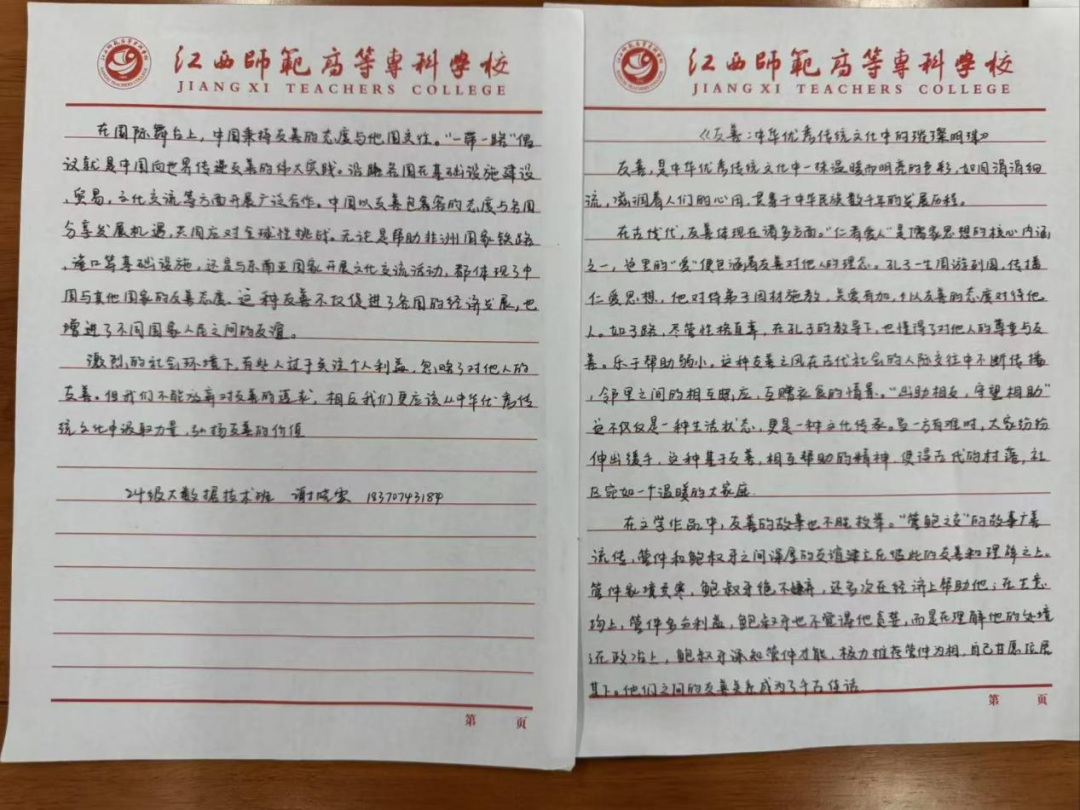 江西师范高等专科学校
JIANGXI TEACHERS COLLEGE
在国际舞台上,中国秉持友善的态度与他国交往。“一带一路”倡
议就是中国向世界传递友善的伟大实践。沿路各国在基础设施建设
,贸易,文化交流等方面开展广泛合作。中国以友善包容的态度与各国
分享发展机遇,共同应对全球性挑战。无论是帮助非洲国家铁路
,港口等基础设施,还是与东南亚国家开展文化交流活动,都体现了中
国与其他国家的友善态度。这种友善不仅促进了各国的经济发展,也
增进了不同国家人民之间的友谊。
激烈的社会环境下,有些人过于关注个人利益,忽略了对他人的
友善。但我们不能放弃对友善的追求,相反我们更应该从中华优秀传
统文化中汲取力量,弘扬友善的价值
24级大数据技术班 谢 18370743184
第 页
江西師範高等專科学校
JIANGXI TEACHERS COLLEGE
《友善:中华优秀传统文化中的璀璨明珠》
友善,是中华优秀传统文化中一抹温暖而明亮的色彩,如同涓涓细
流,滋润着人们的心田,贯番于中华民族数千年的发展历程。
在古代,友善体现在诸多方面。“仁者爱人”是儒家思想的核心内涵
之一,这里的“爱”便包涵着友善对他人的理念。孔子一生周游列国,传播
仁爱思想,他对待弟子因材施教,关爱有加,以友善的态度对待他
人。如子路,尽管性格直率,在孔子的教导下,也懂得了对他人的尊重与友
善。乐于帮助弱小。这种友善之风在古代社会的人际交往中不断传播
,邻里之间的相互照应,互赠衣食的情景。“出助相友,守望相助”
这不仅仅是一种生活状态,更是一种文化传承。当一方有难时,大家纷纷
伸出援手,这种基于友善,相互帮助的精神,使得古代的村落,社
区宛如一个温暖的大家庭.
在文学作品中,友善的故事也不胜枚举。“管鲍之交”的故事广为
流传,管仲和鲍叔牙之间深厚的友谊建立在彼此的友善和理解之上。
管仲家境贫寒,鲍叔牙绝不嫌弃,还多次在经济上帮助他;在生意
场上,管仲多分利益,鲍叔牙也不觉得他贪婪,而是在理解他的处境
还在政治上,鲍叔牙深知管仲才能,极力推荐管仲为相,自己甘愿位居
其下。他们之间的友善关系成为了千古佳话.
第 页